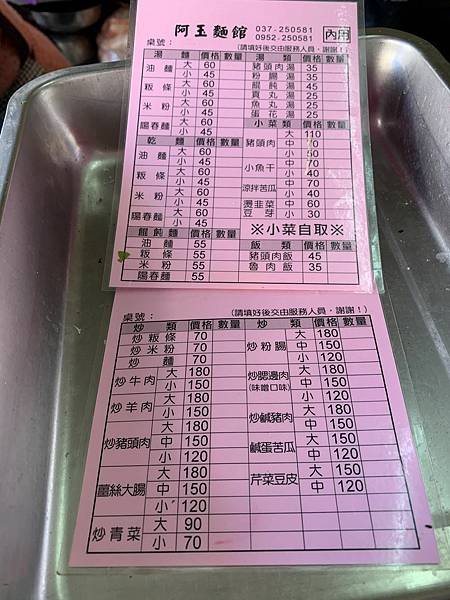 阿玉麵館 037-250581 0952-250581 內用
桌號： (請填好後交由服務人員,謝謝!)
湯 麵 價格 數量 湯 類 價格 數量
油麵 大 60 豬頭肉湯 35
小 45 粉腸湯 35
粄條 大 60 餛飩湯 45
小 45 貢丸湯 25
米粉 大 60 魚丸湯 25
小 45 蛋花湯 25
陽春麵 大 60 小菜類 價格 數量
小 45 豬頭肉 大 110
乾 麵 價格 數量 中 70
油麵 大 60 小 50
小 45 小魚干 中 70
粄條 大 60 小 40
小 45 涼拌苦瓜 中 70
米粉 大 60 小 40
小 45 燙韭菜 中 60
陽春麵 大 60 豆芽 小 30
小 45 ※小菜自取※
餛飩麵 價格 數量
油麵 55 飯 類 價格 數量
粄條 55 豬頭肉飯 45
米粉 55 魯肉飯 35
陽春麵 55
桌號： (請填好後交由服務人員,謝謝!)
炒 類 價格 數量 炒 類 價格 數量
炒粄條 70 炒粉腸 大 180
炒米粉 70 中 150
炒麵 70 小 120
炒牛肉 大 180 炒腮邊肉 (味噌口味) 大 180
小 150 中 150
炒羊肉 大 180 小 120
小 150 炒鹹豬肉 大 150
炒豬頭肉 大 180 中 120
中 150 鹹蛋苦瓜 大 150
小 120 中 120
薑絲大腸 大 180 芹菜豆皮 大 150
中 150 中 120
小 120
炒青菜 大 90
小 70